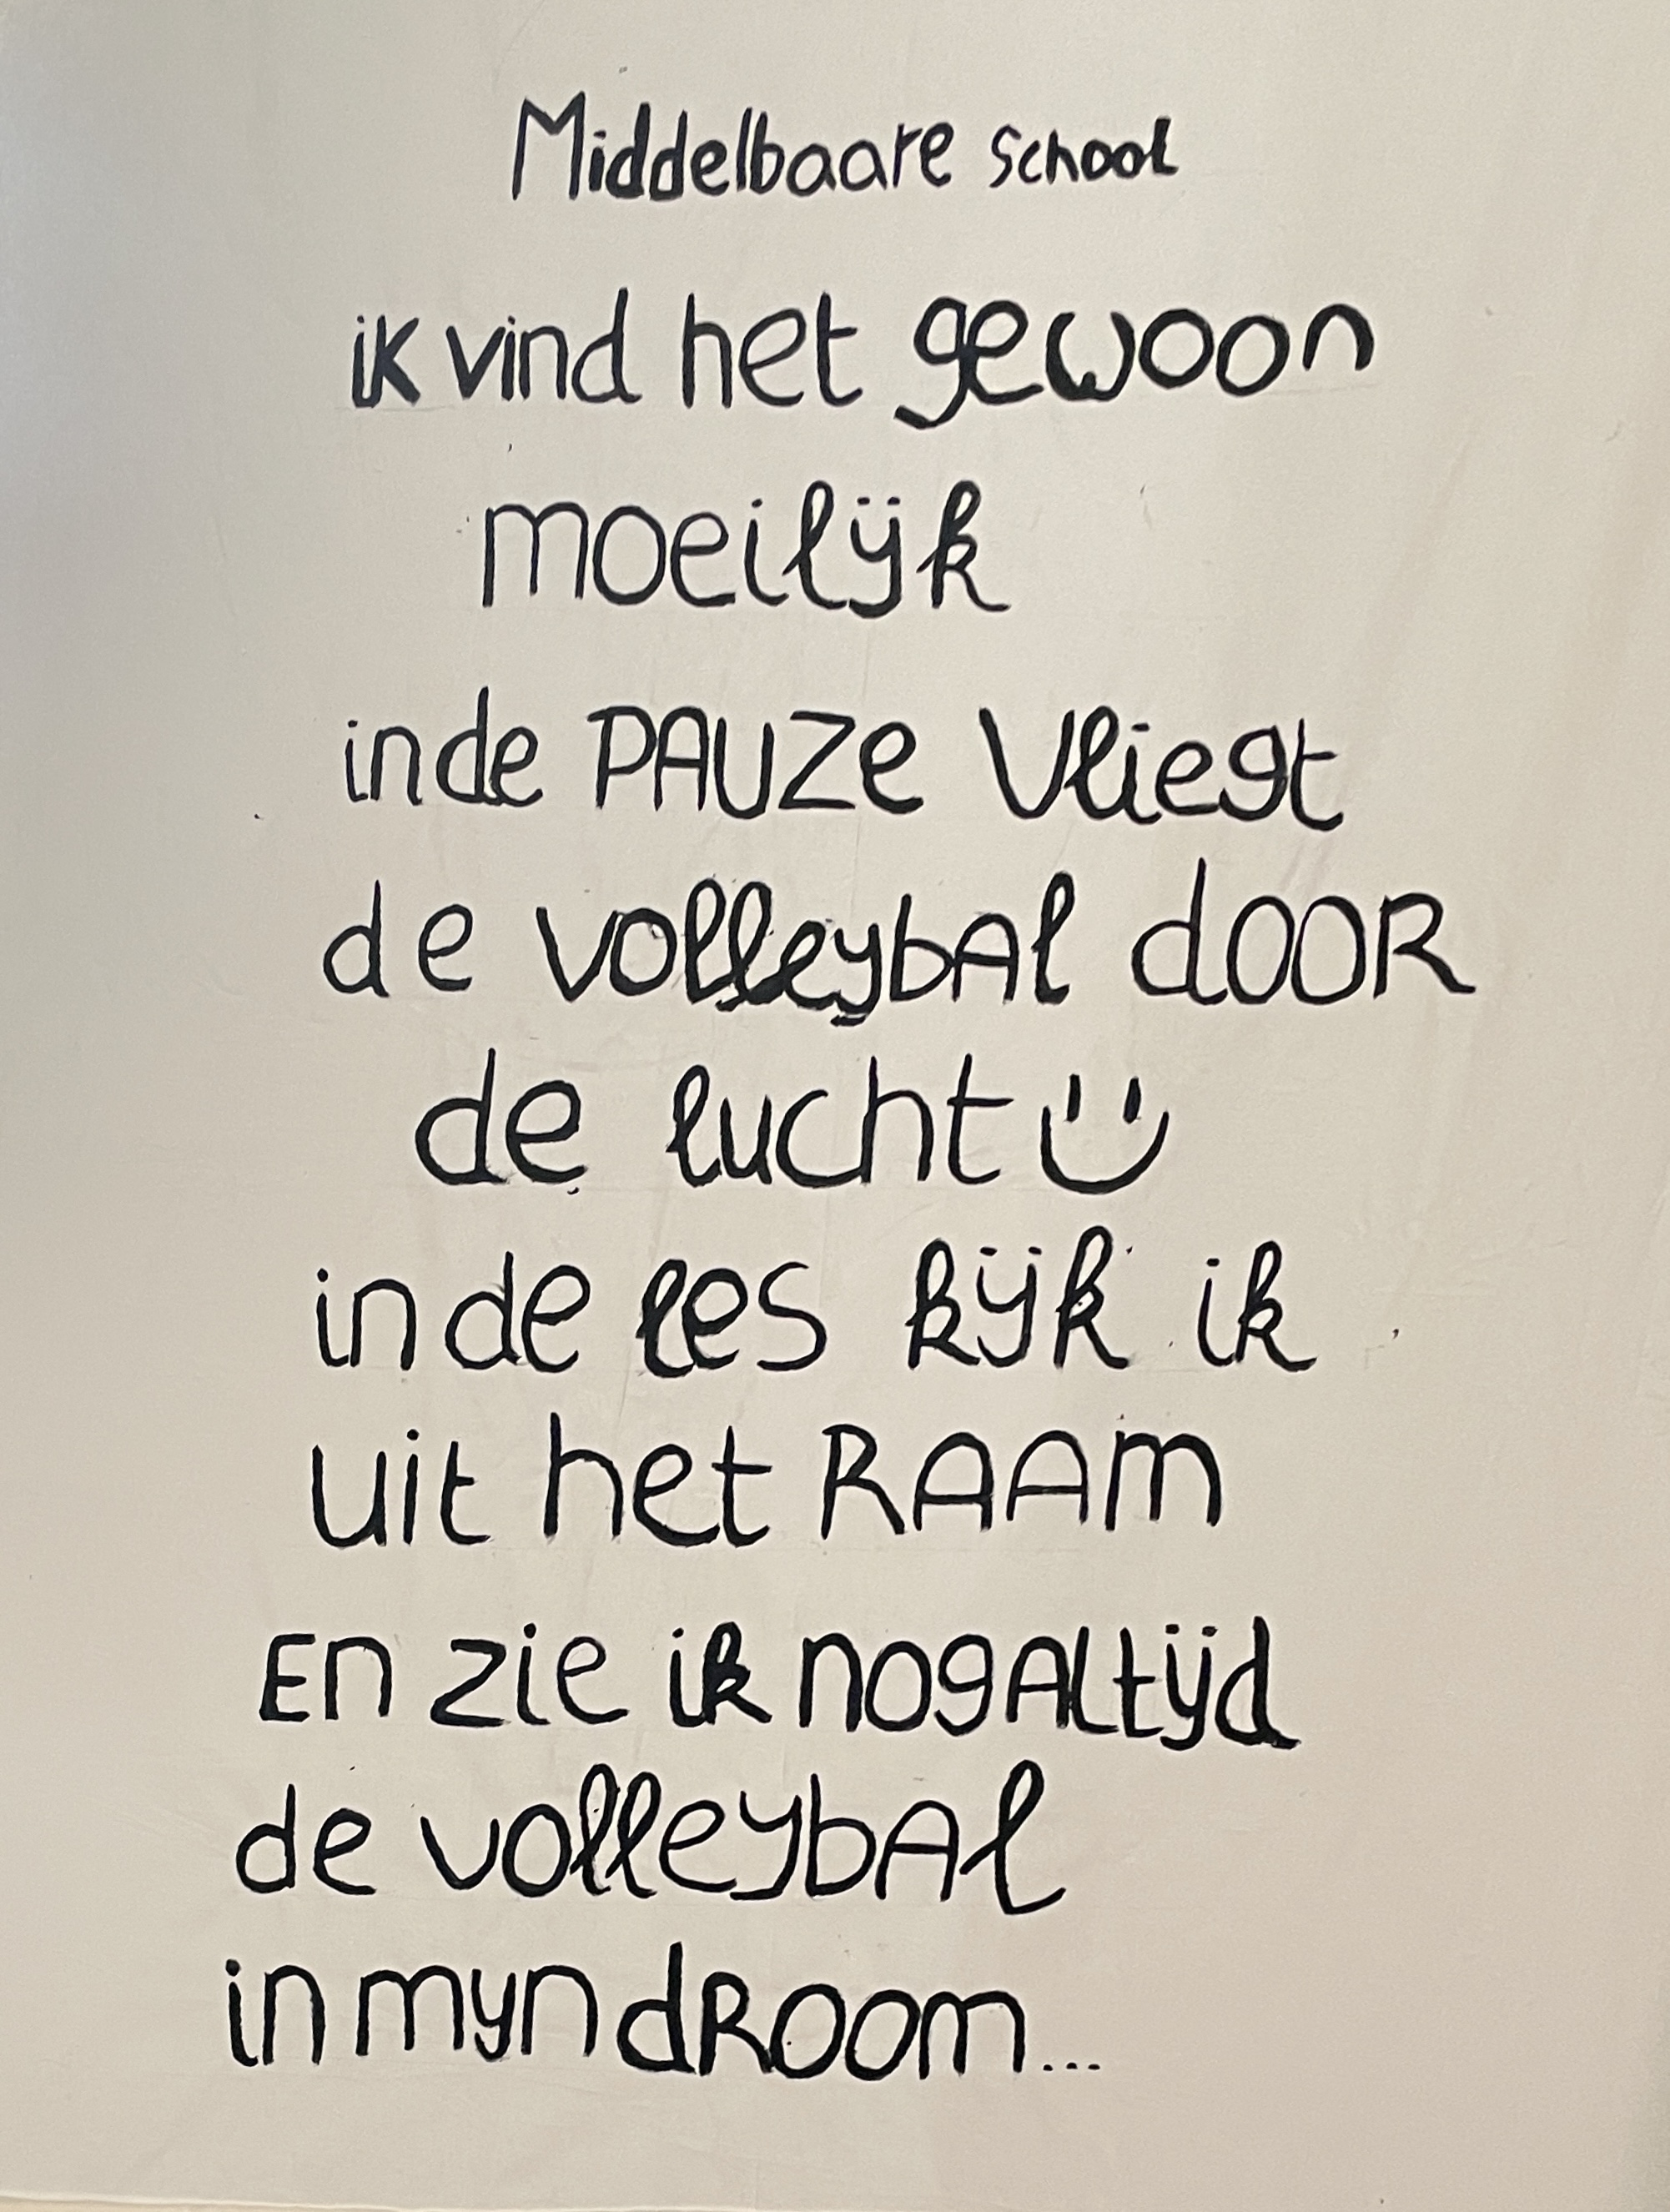 Middelbaare school
ik vind het gewoon
moeilijk
in de PAUZe Vliegt
de volleybAl dOOR
de lucht
in de les kijk ik
uit het RAAm
En zie ik nog Altijd
de volleybAl
in myn dRoom...